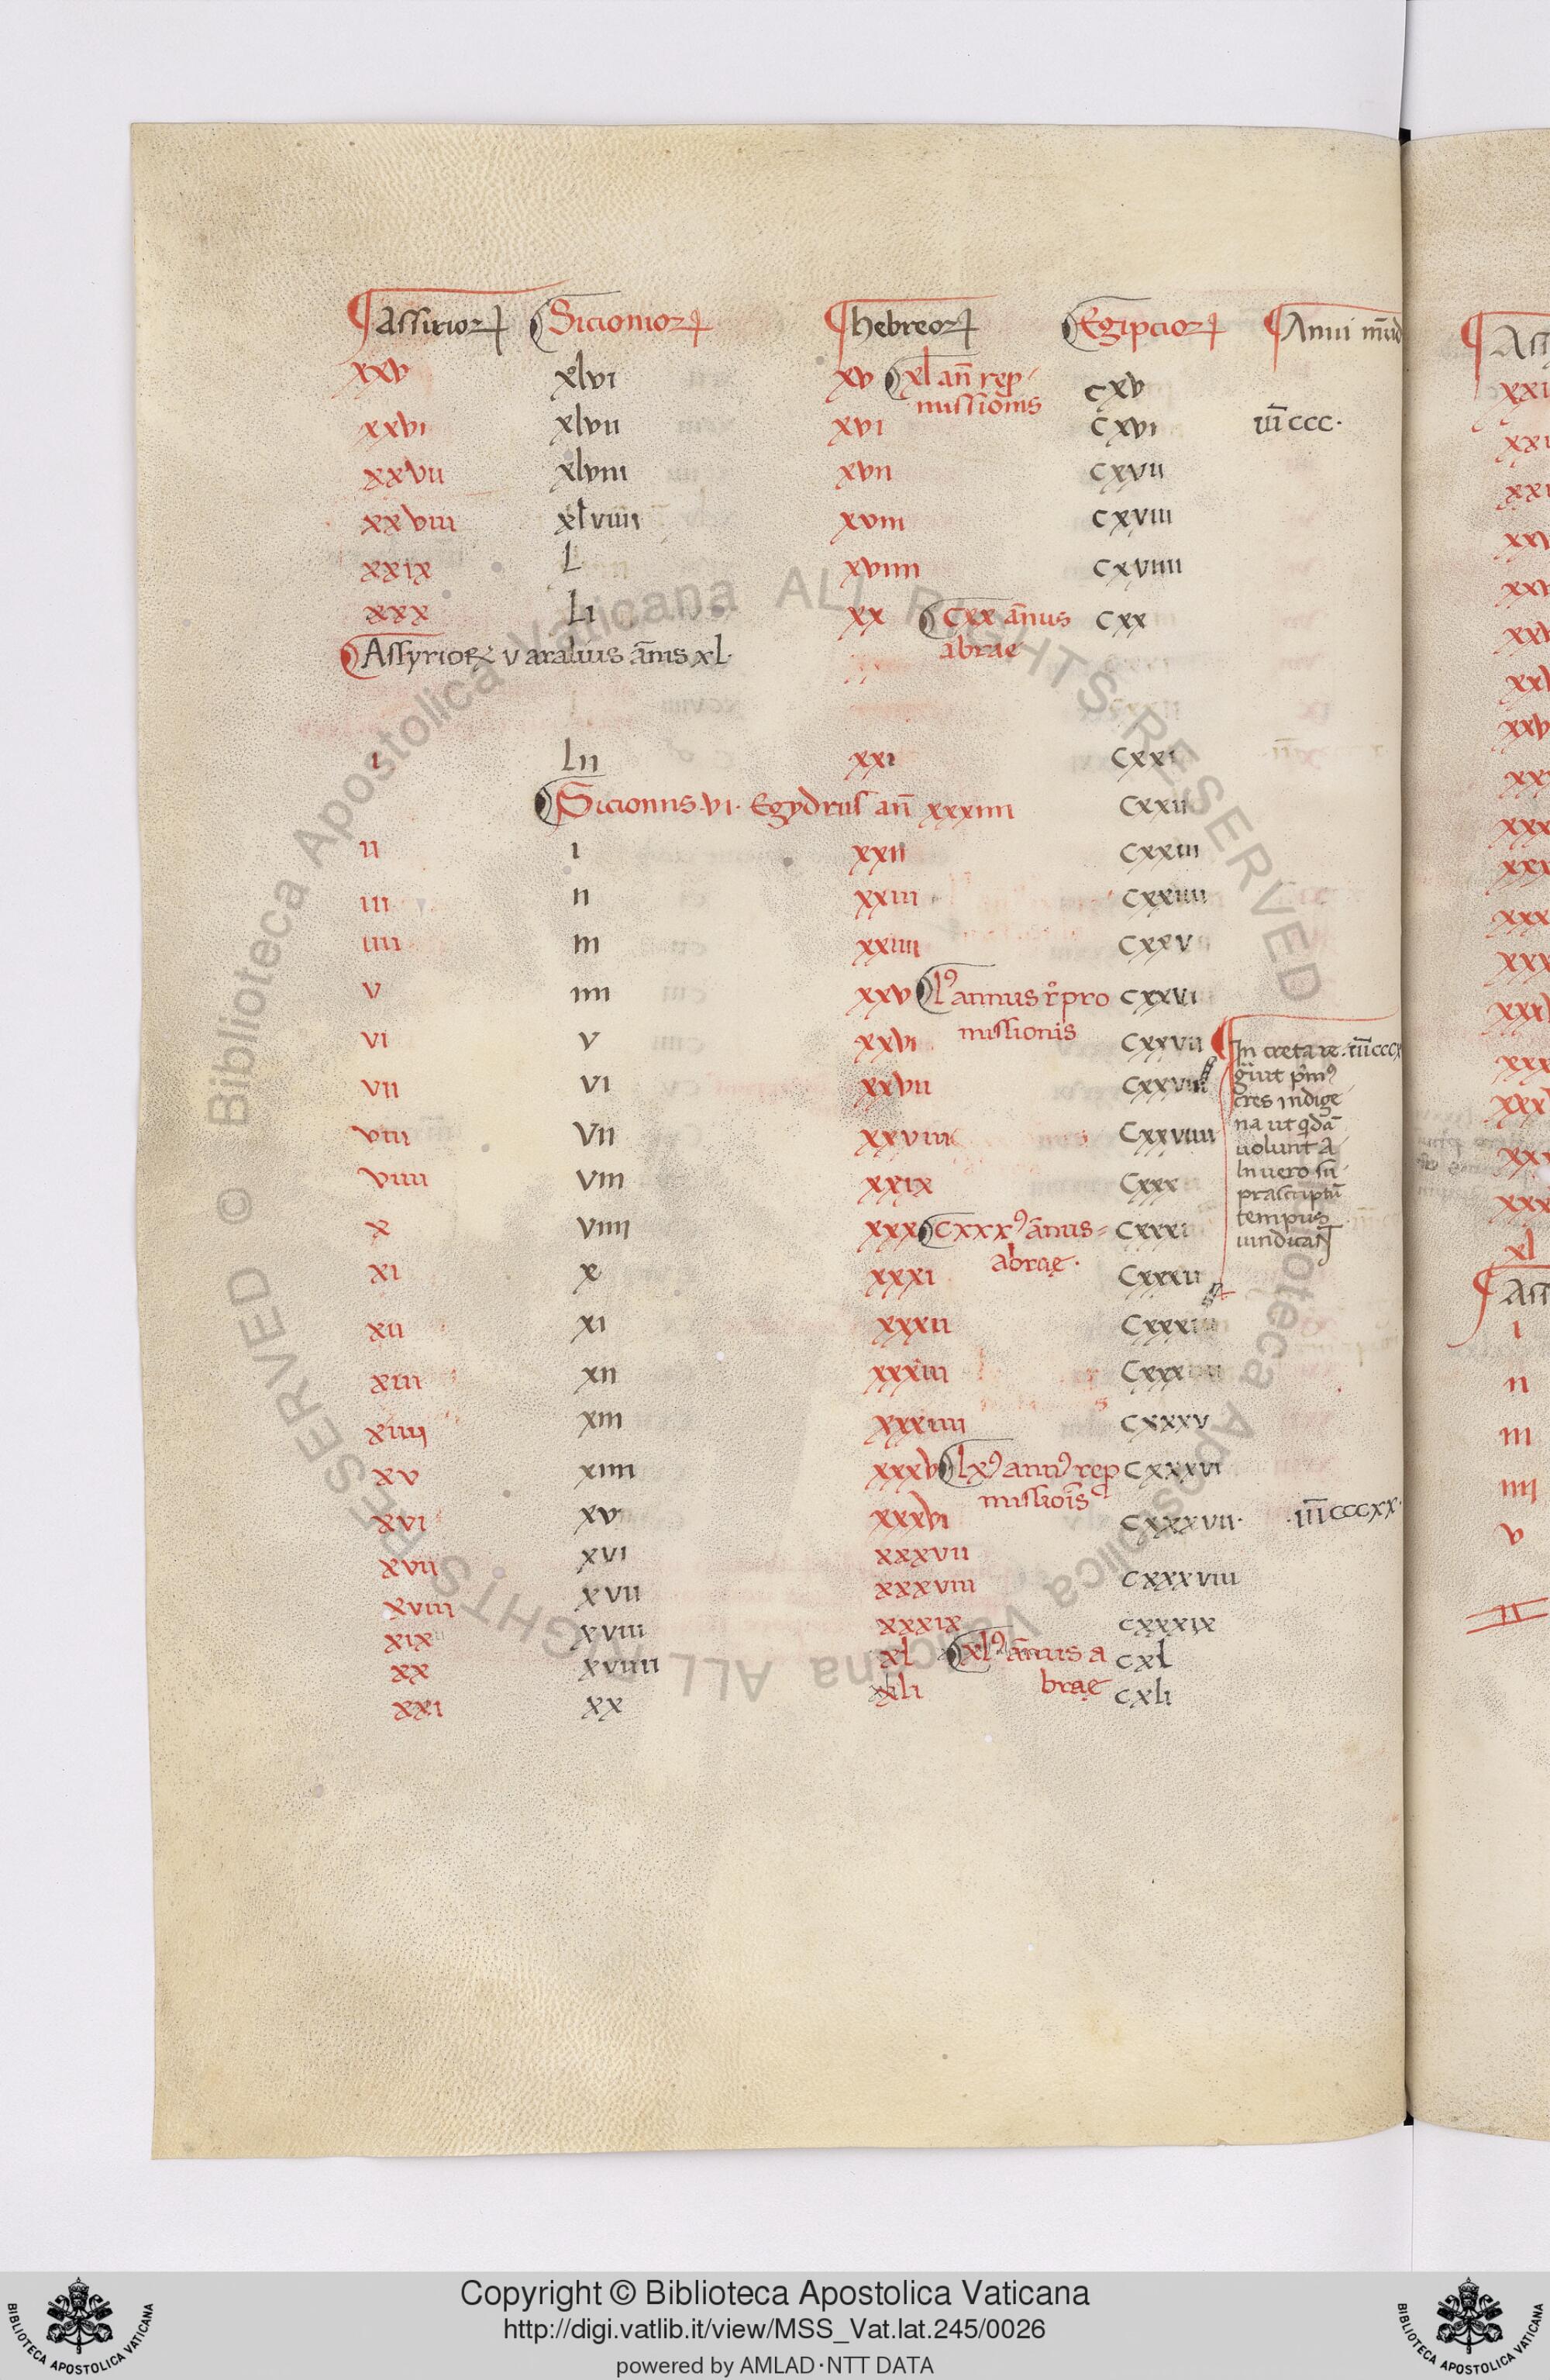 assirioꝝ Sicionioꝝ hebreoꝝ Egipcioꝝ Anni mūd
xxv xlvi xv xl an̄ rep
missionis cxv
xxvi xlvii xvi cxvi iii̅ ccc.
xxvii xlviii xvii cxvii
xxviii xlviiii xviii cxviii
xxix L xviiii cxviiii
xxx Li xx cxx ānus cxx
abrae
Assyrioꝝ v aralius ānis xl.
i Lii xxi cxxi
Sicioniis .vi. Egydrus an̄ xxxiiii cxxii
ii i xxii cxxiii
iii ii xxiii cxxiiii
iiii iii xxiiii cxxv
v iiii xxv lꝰ annus r̄pro cxxvi
missionis
vi v xxvi cxxvii In creta re iii̅cccx
gn̄it pͥmꝰ
vii vi xxvii cxxviii cres indige
viii vii xxviii cxxviiii na ut qͥdā
uolunt a
viiii viii xxix cxxx lii uero su
prascriptū
tempus
x viiii xxx cxxxꝰ ānus cxxxi uindican̄t
abraę.
xi x xxxi cxxxii
xii xi xxxii cxxxiii
xiii xii xxxiii cxxxiiii
xiiii xiii xxxiiii cxxxv
xv xiiii xxxv lxꝰ annꝰ rep cxxxvi
missiōis
xvi xv xxxvi cxxxvii. .iii̅cccxx.
xvii xvi xxxvii
xviii xvii xxxviii cxxxviii
xix xviii xxxix cxxxix
xx xviiii xl xlꝰ ānus a cxl
brae
xxi xx xli cxli
Copyright © Biblioteca Apostolica Vaticana
http://digi.vatlib.it/view/MSS_Vat.lat.245/0026
powered by AMLAD·NTT DATA
BIBLIOTECA APOSTOLICA VATICANA
BIBLIOTECA APOSTOLICA VATICANA
© Biblioteca Apostolica Vaticana ALL RIGHTS RESERVED
© Biblioteca Apostolica Vaticana ALL RIGHTS RESERVED